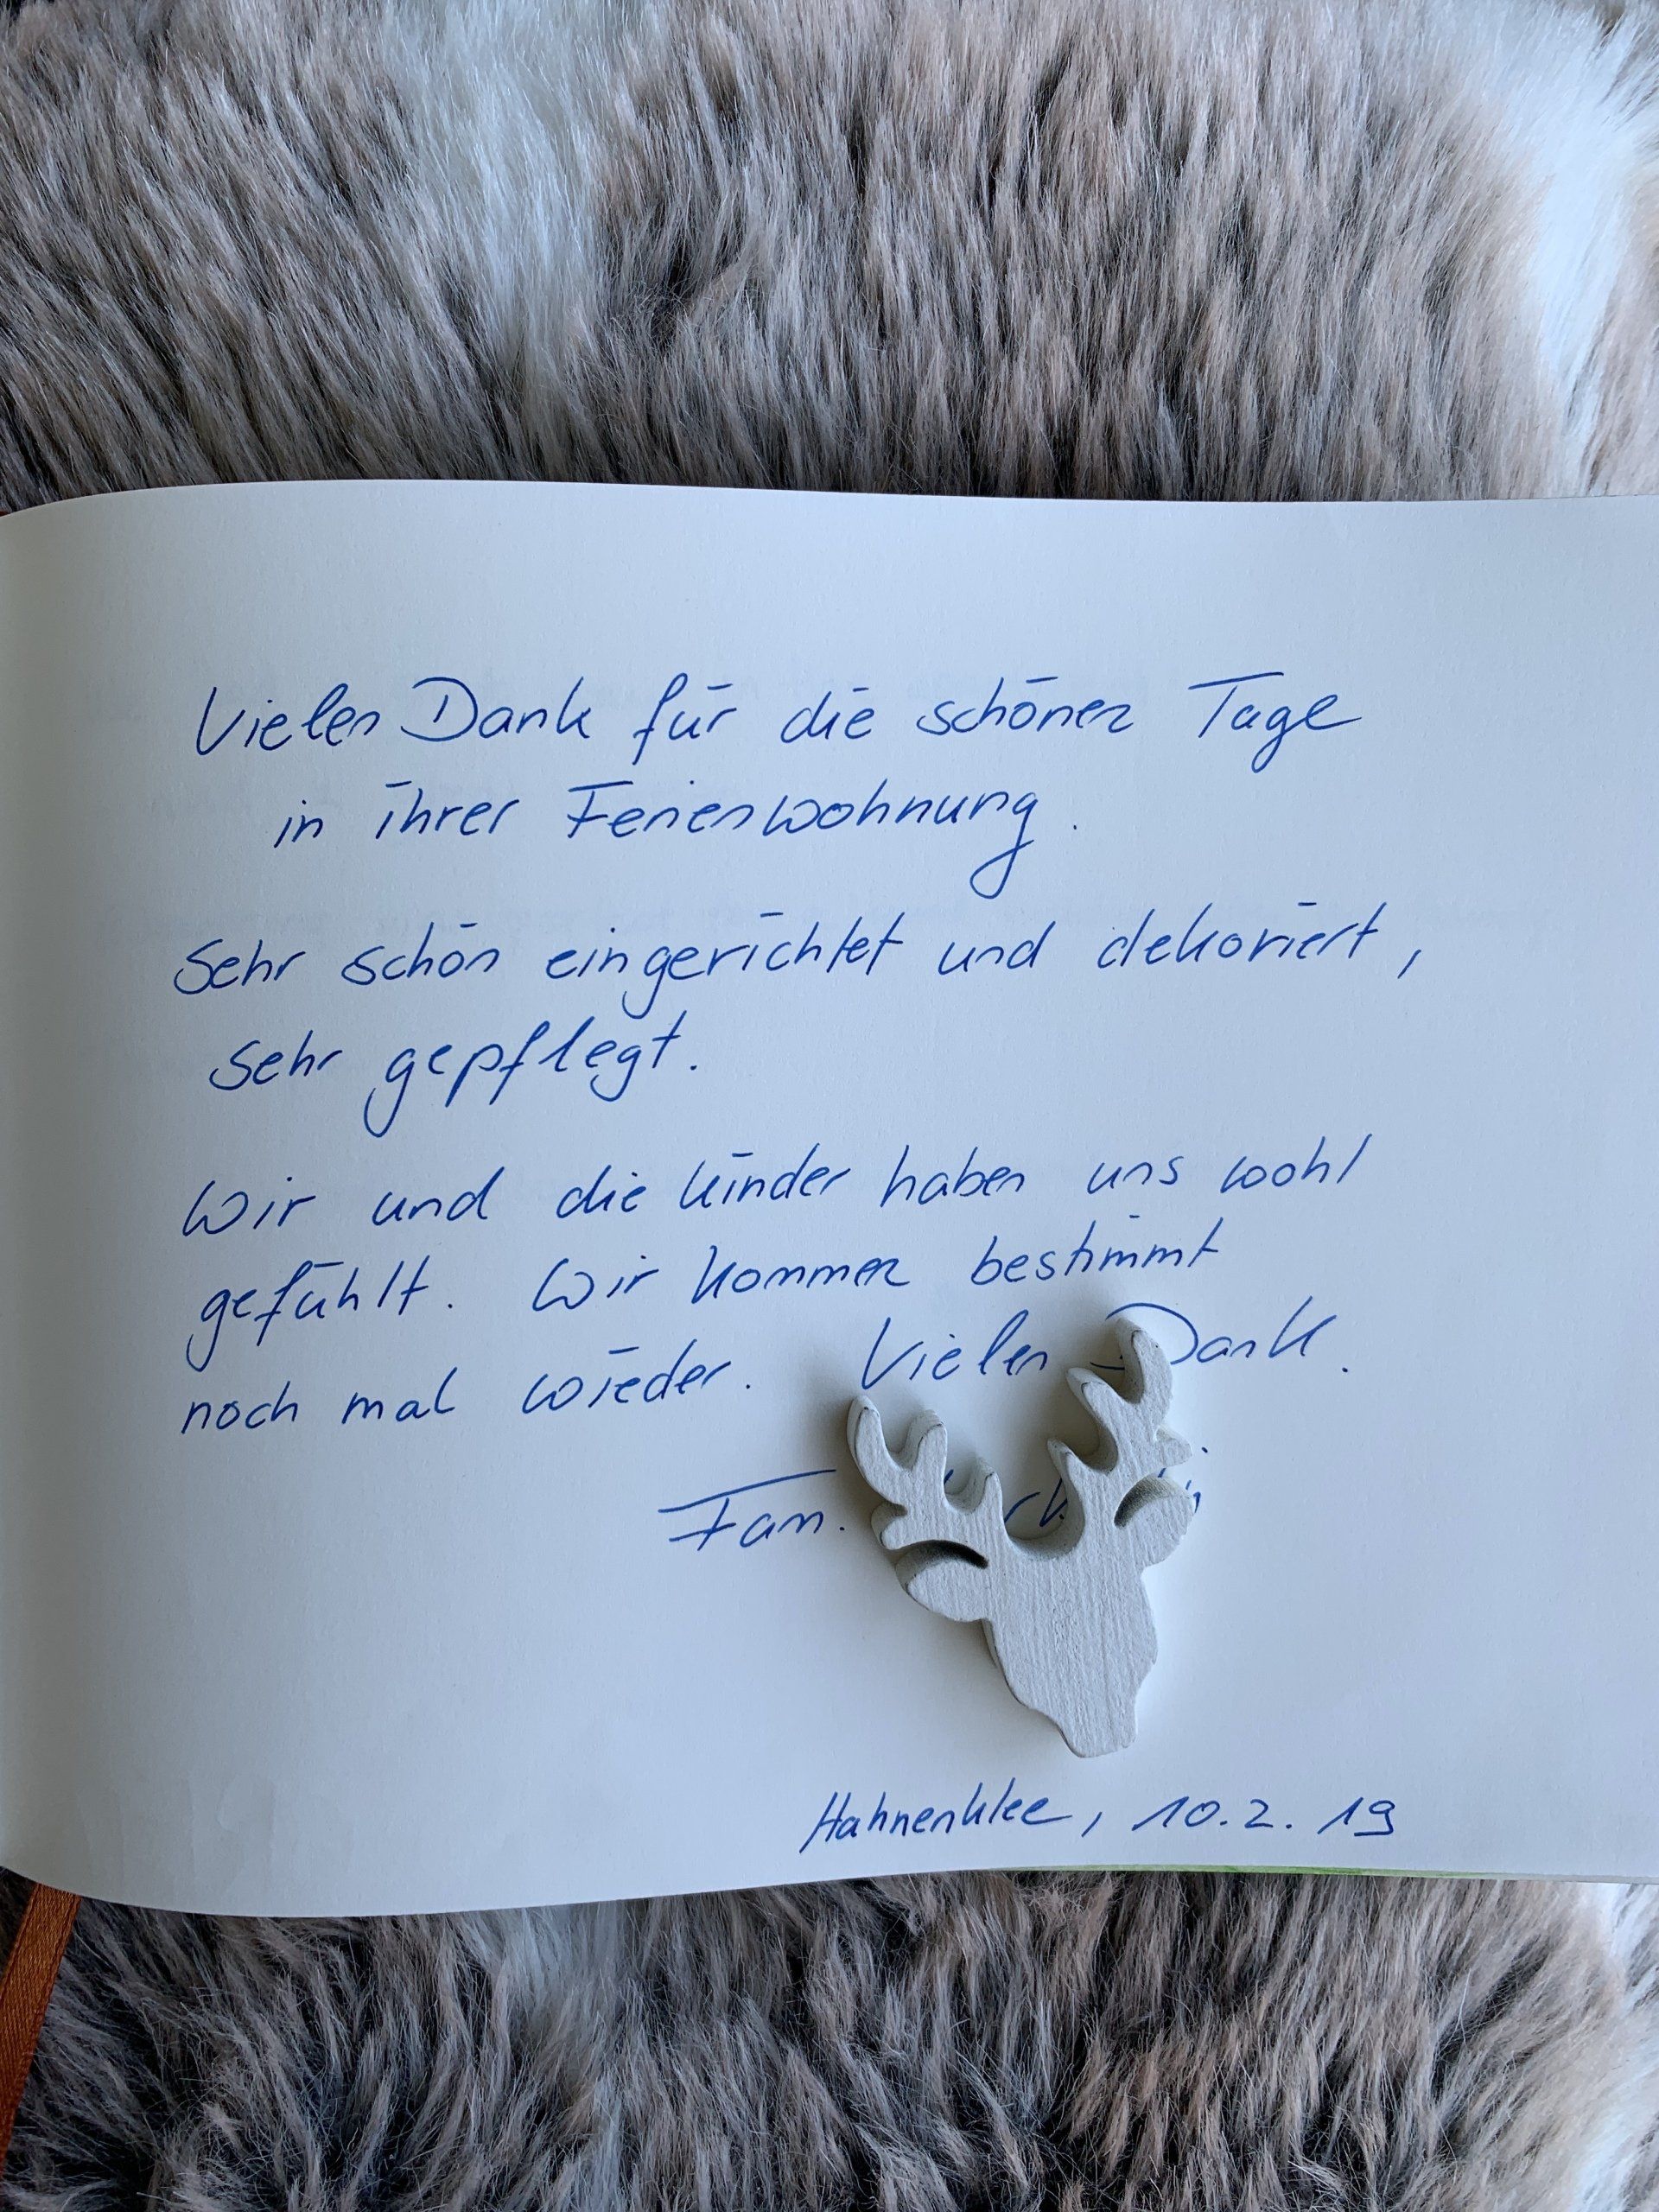 Vielen Dank für die schönen Tage
in ihrer Ferienwohnung.
Sehr schön eingerichtet und dekoriert,
sehr gepflegt.
Wir und die Kinder haben uns wohl
gefühlt. Wir kommen bestimmt
noch mal wieder. Vielen Dank.
Fam.
Hahnenklee, 10.2.19